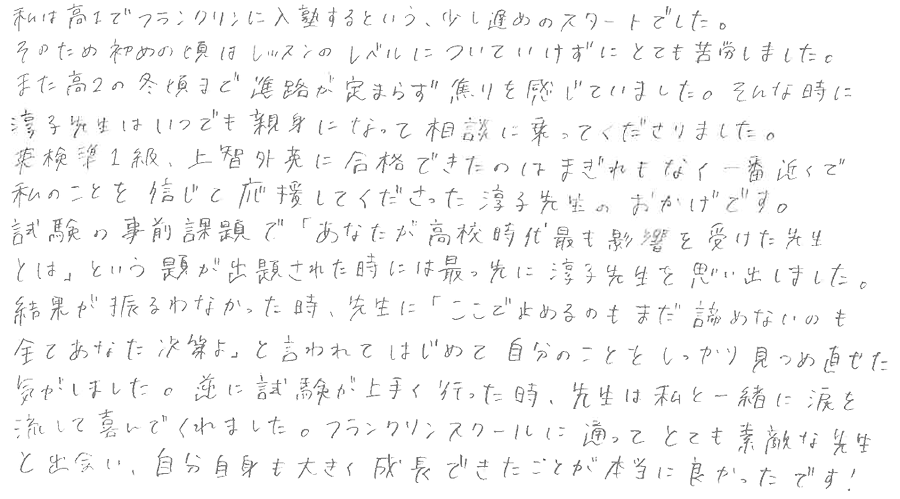 私は高1でフランクリンに入塾するという、少し遅めのスタートでした。
そのため初めの頃はレッスンのレベルについていけずにとても苦労しました。
また高2の冬頃まで進路が定まらず焦りを感じていました。そんな時に
淳子先生はいつでも親身になって相談に乗ってくださりました。
英検準1級、上智外英に合格できたのはまぎれもなく一番近くで
私のことを信じて応援してくださった淳子先生のおかげです。
試験の事前課題で「あなたが高校時代最も影響を受けた先生
とは」という題が出題された時には最っ先に淳子先生を思い出しました。
結果が振るわなかった時、先生に「ここで止めるのもまだ諦めないのも
全てあなた次第よ」と言われてはじめて自分のことをしっかり見つめ直せた
気がしました。逆に試験が上手く行った時、先生は私と一緒に涙を
流して喜んでくれました。フランクリンスクールに通ってとても素敵な先生
と出会い、自分自身も大きく成長できたことが本当に良かったです!